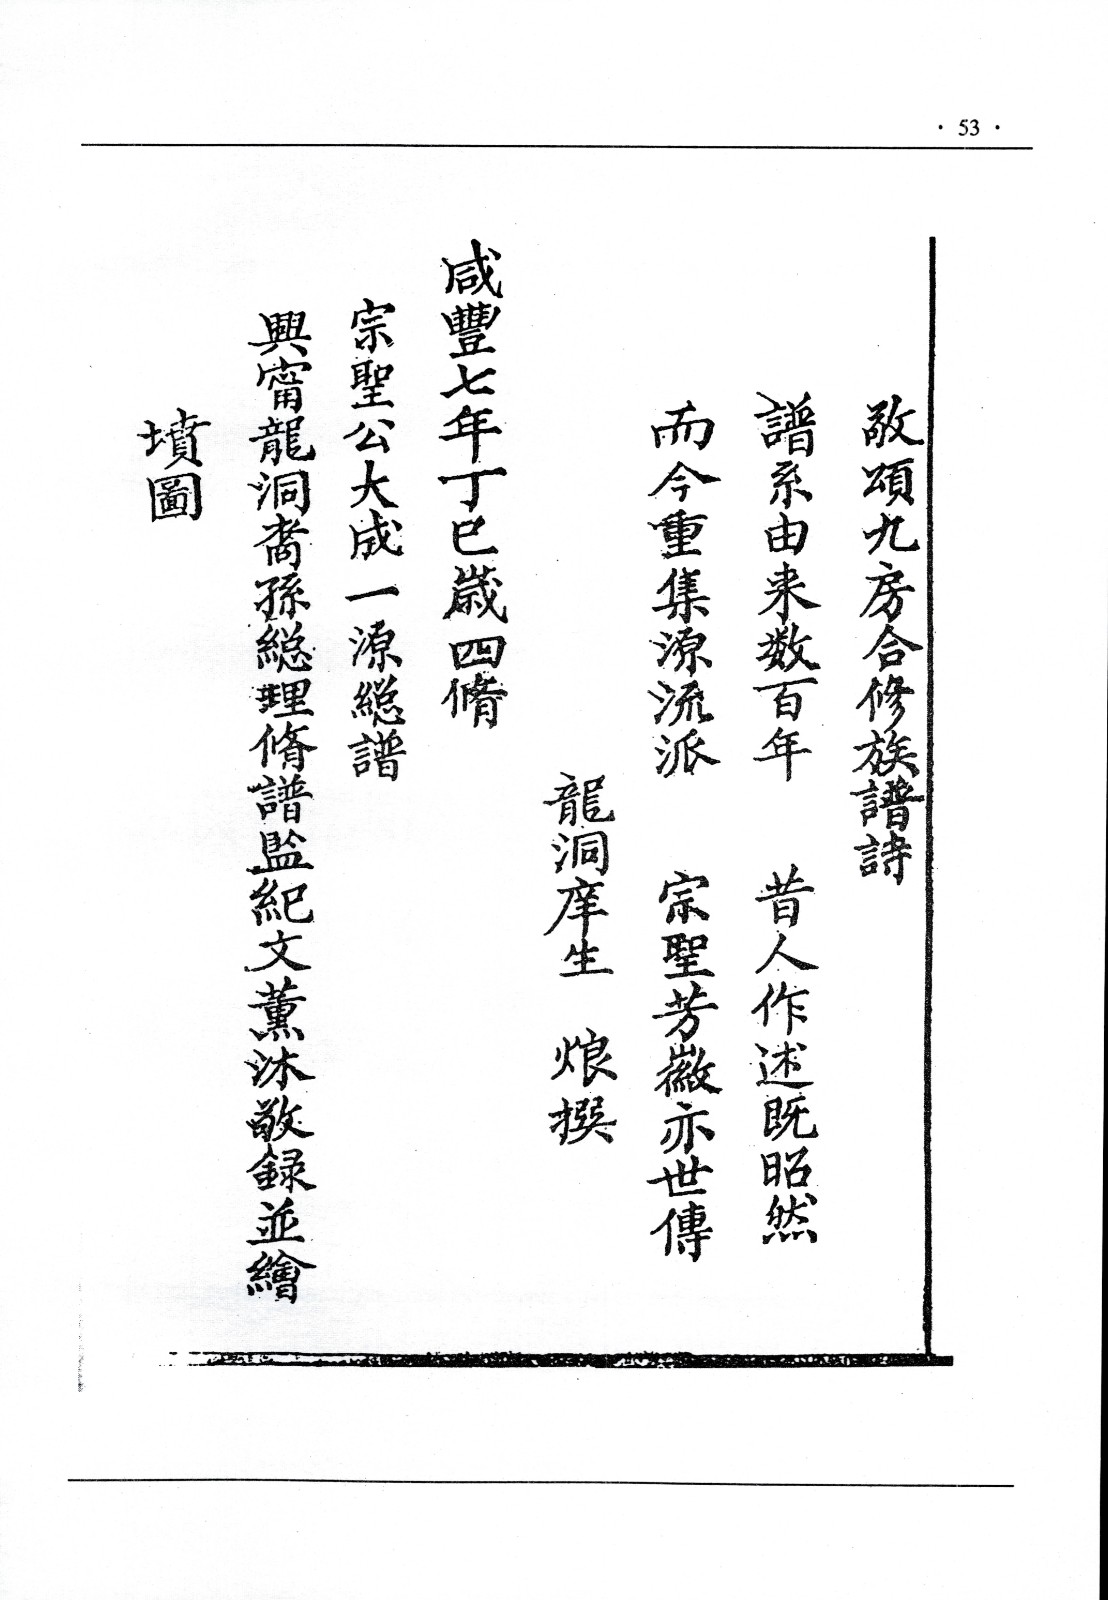 · 53 ·
敬頌九房合修族譜詩
譜系由来数百年　昔人作述既昭然
而今重集源流派　宗聖芳徽亦世傳
龍洞庠生　烺撰
咸豐七年丁巳歲四脩
宗聖公大成一源総譜
興甯龍洞裔孫総理脩譜監紀文薰沐敬録並繪
墳圖